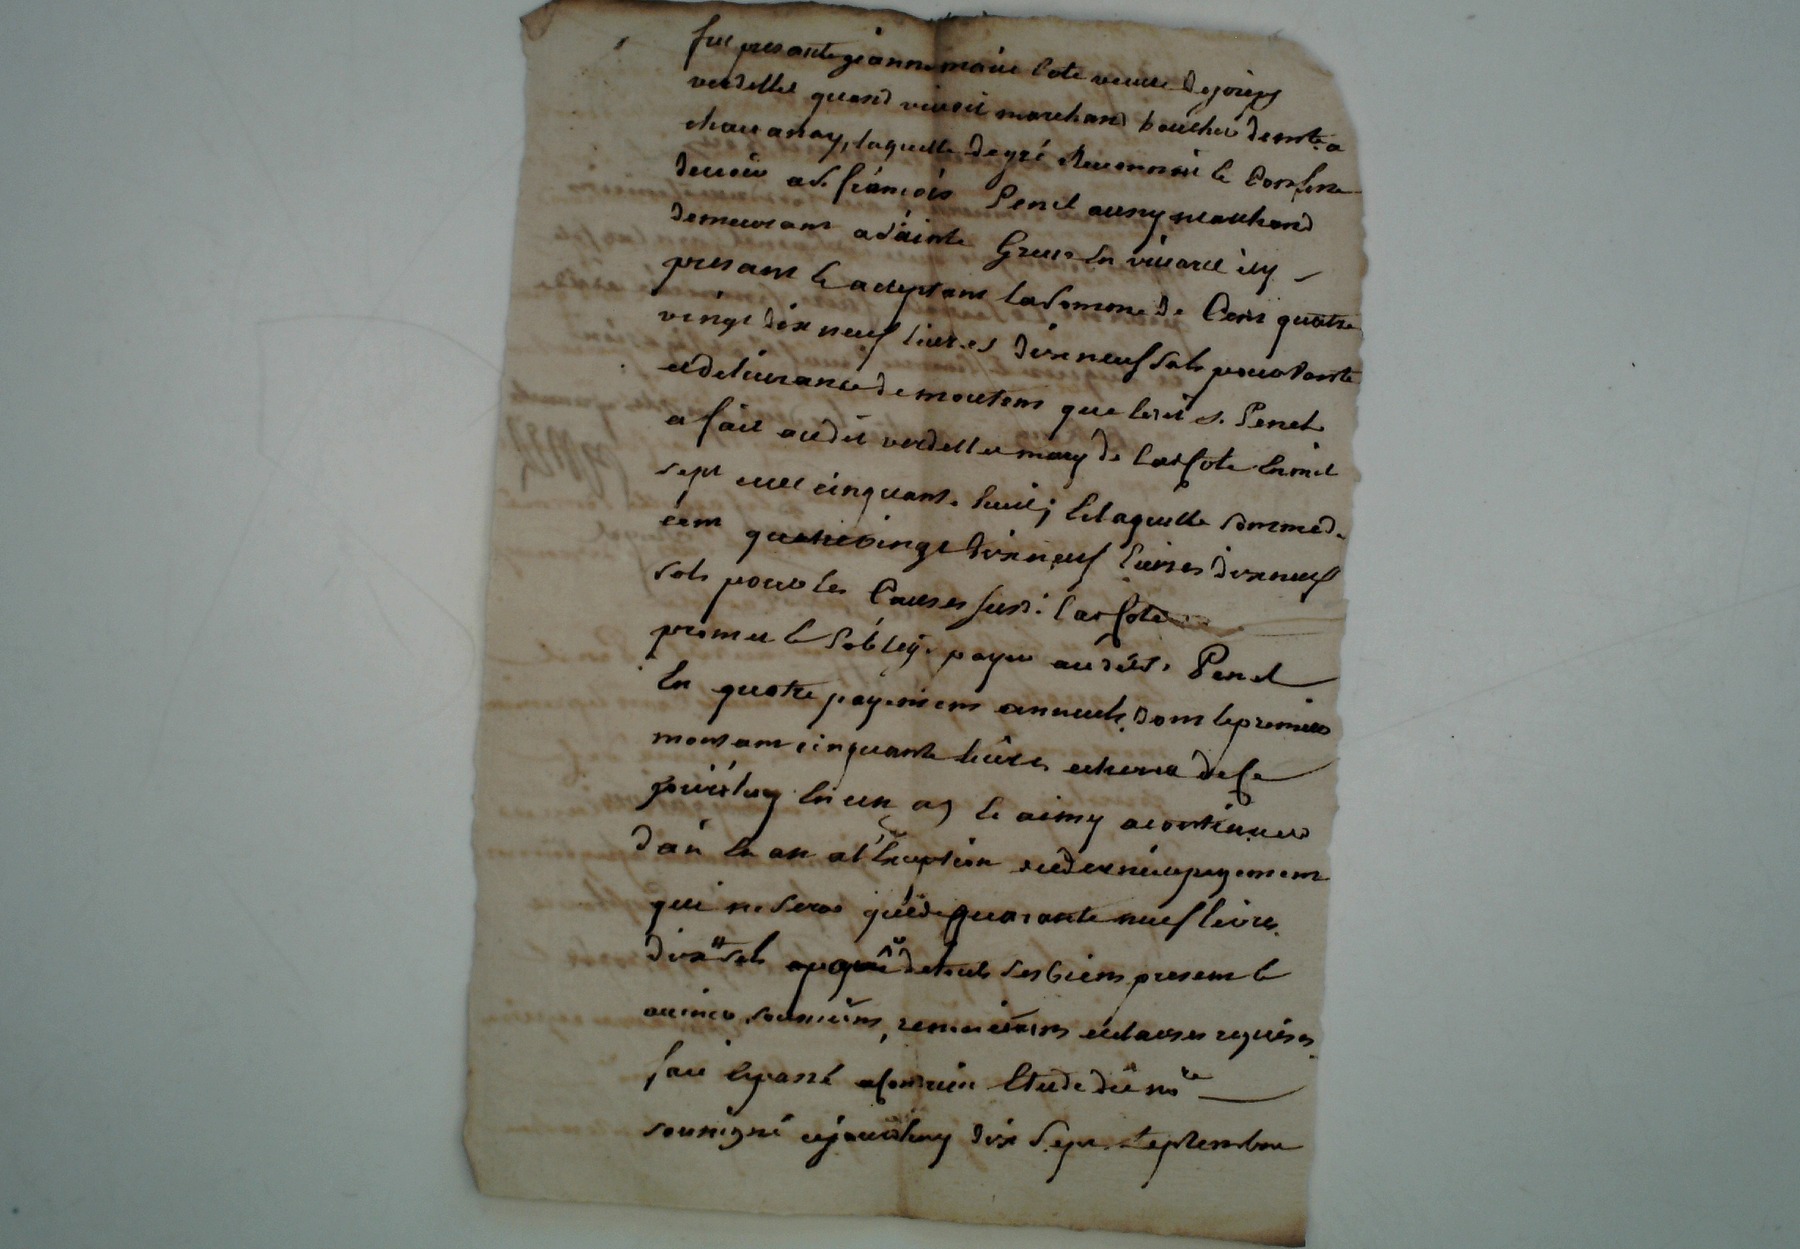 fut presante jeanne marie Cote veuve de joseph
verdellet quand vivoit marchand boucher demt. a
chavanay, laquelle de gré a reconnu et Confesse
devoir a s. françois Penel aussy marchand
demeurant a sainte Greve en vivarit icy
present et acceptant la somme de Cent quatre
vingt dix neuf livres dix neuf sols pour vante
et delivrance de moutons que ledit s. Penel
a fait audit verdellet mary de lad. Cote En mil
sept cent cinquante huit; Et laquelle somme de
cent quatre vingt dix neuf livres dix neuf
sols pour les Causes susd. lad. Cote
promet et s'oblige payer audit s. Penel
En quatre payements annuels, dont le premier
montant cinquante livres echerra de ce
jourd'huy En un an et ainsy a continuer
d'an En an a l'Exception du dernier payement
qui ne sera que de quarante neuf livres
dix 9 sols de tous ses biens presents et
avenir soumissions, renonciations et clauses requises
fait et passé a Condrieu Etude du nore
soussigné cejourdhuy dix sept septembre